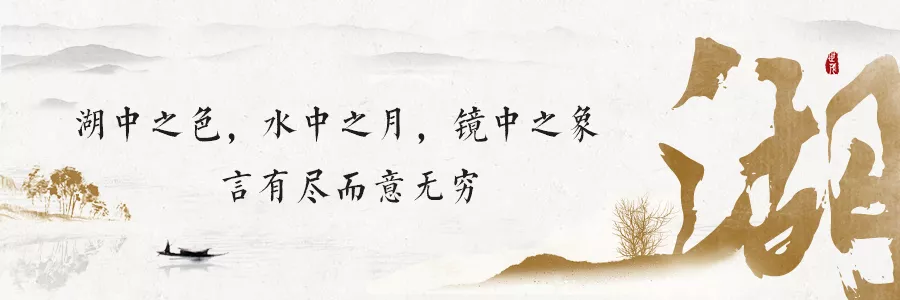 湖中之色，水中之月，镜中之象
言有尽而意无穷
湖